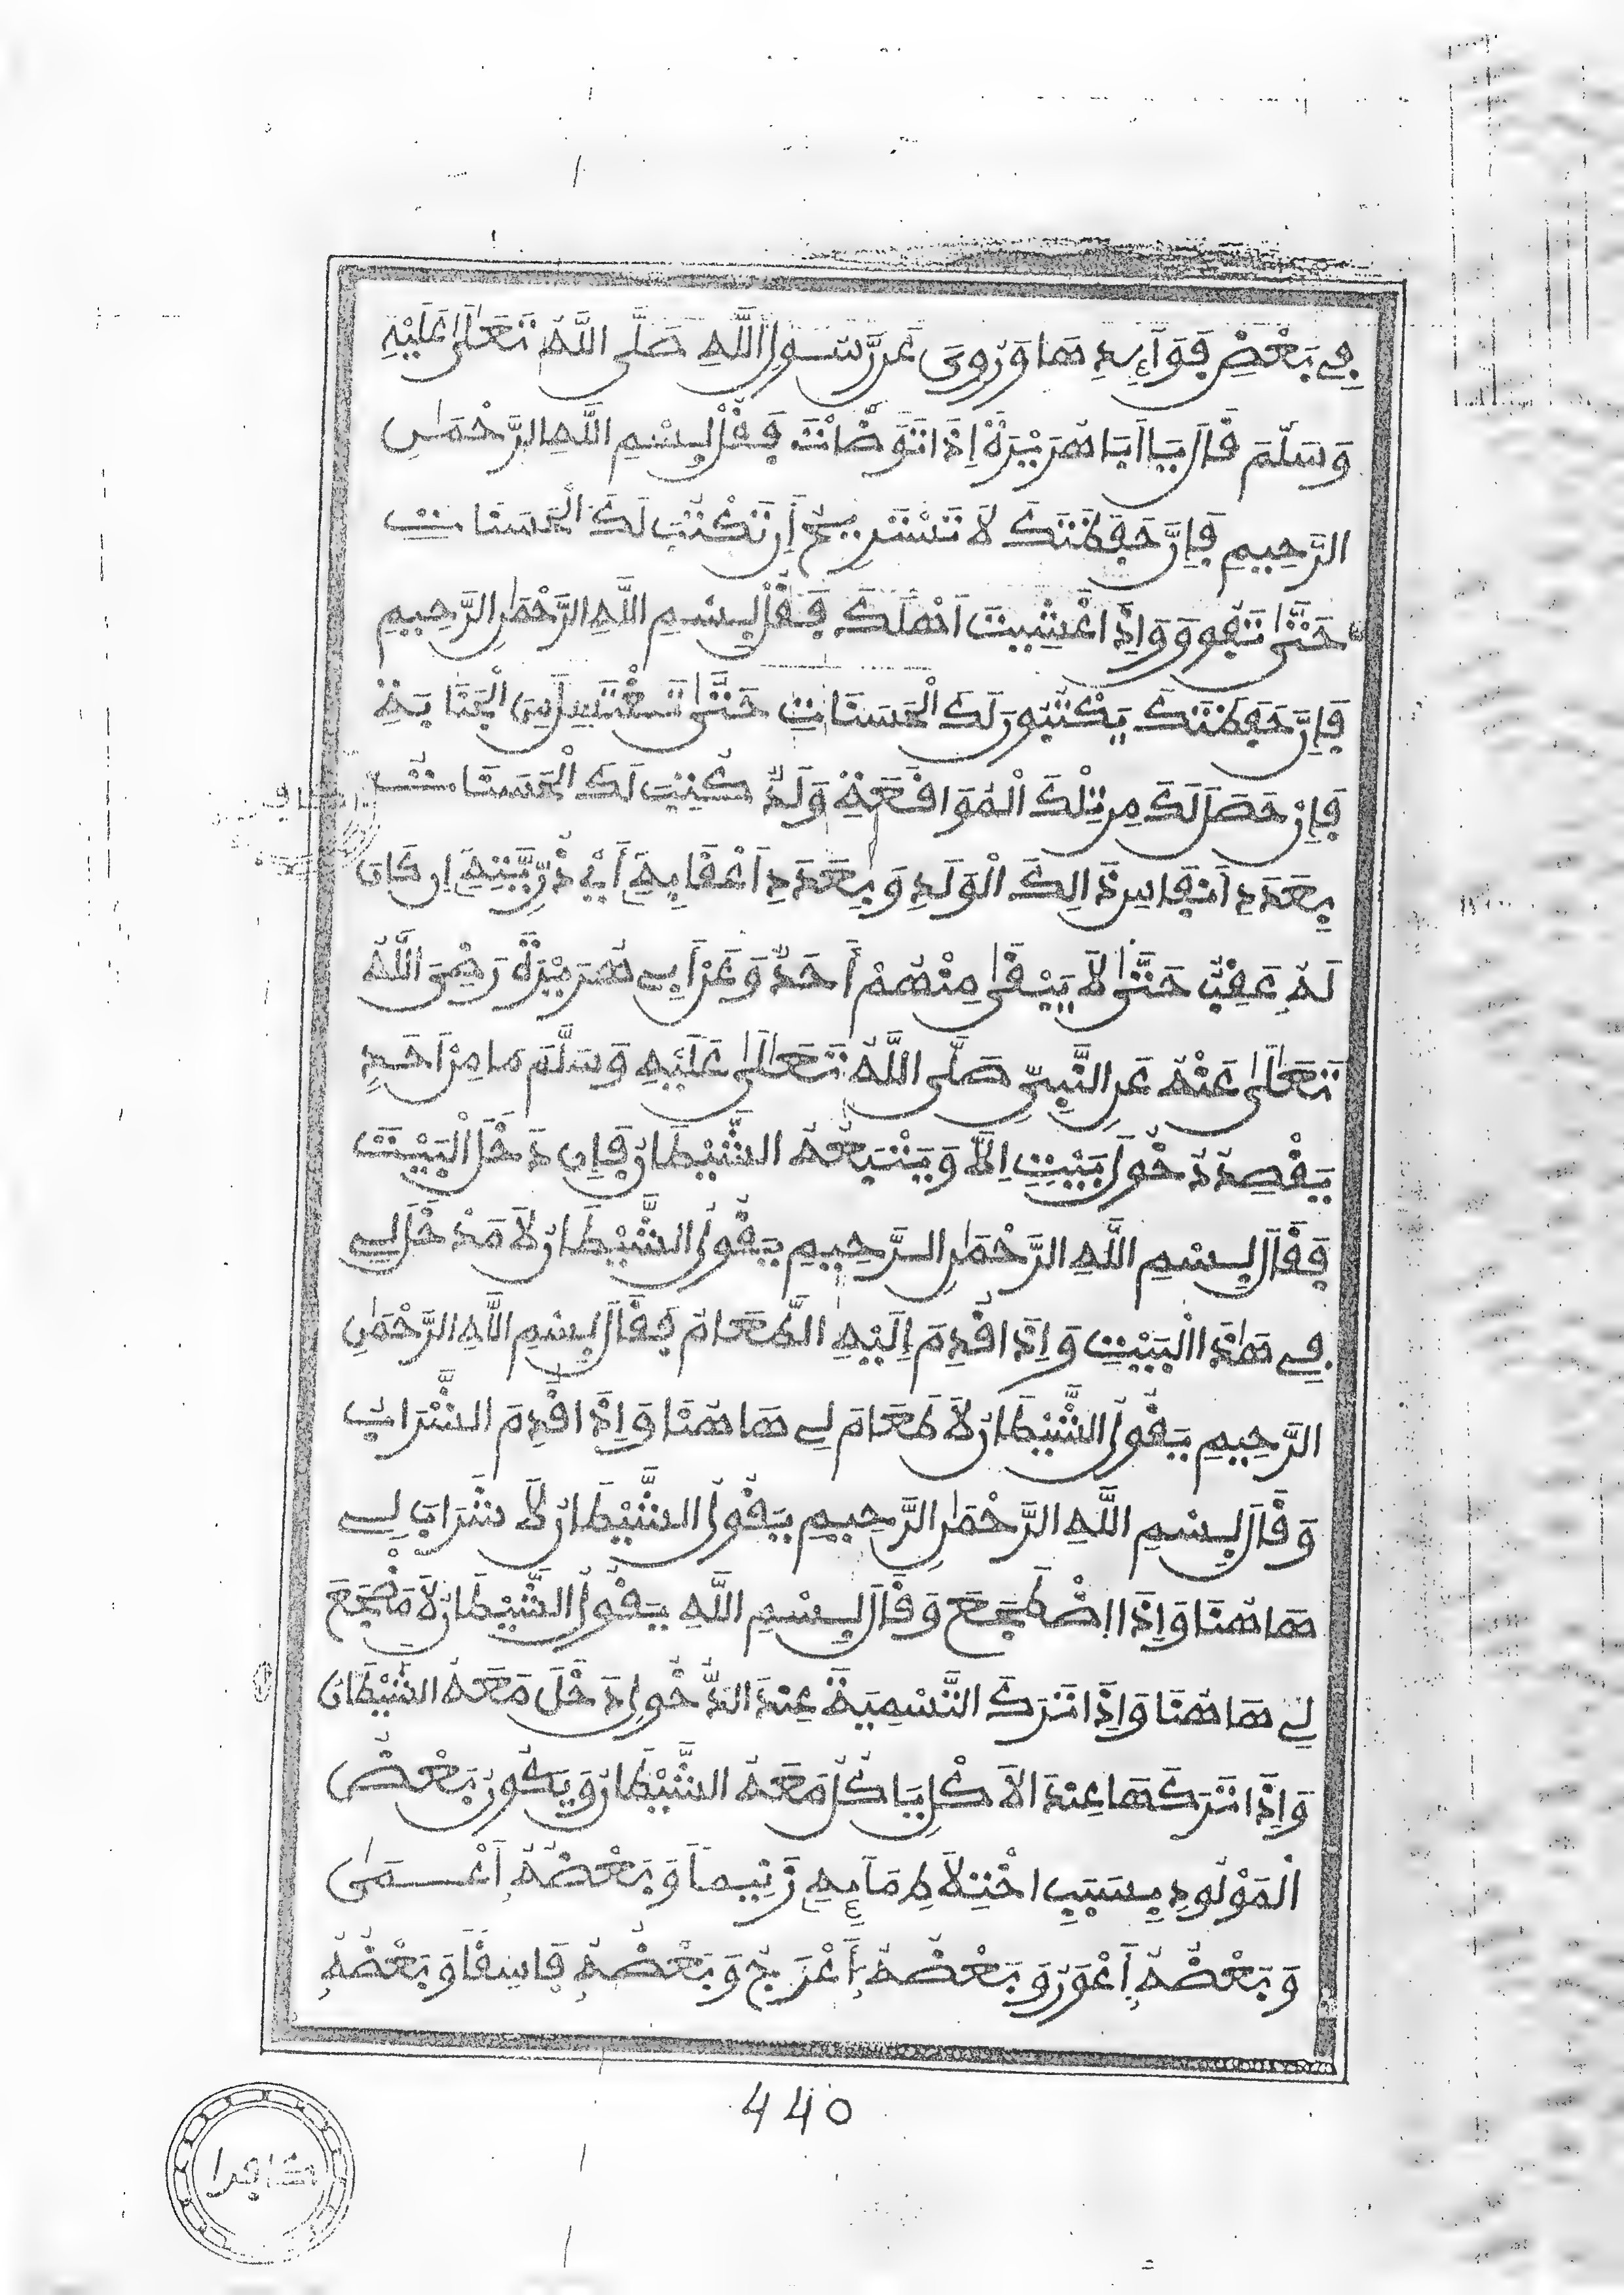 فِي بَعْضِ فَوَآئِدِهَا وَرُوِيَ عَن رَّسُولِ اللَّهِ صَلَّى اللَّهُ تَعَالَىٰ عَلَيْهِ
وَسَلَّمَ قَالَ يَا أَبَا هُرَيْرَةَ إِذَا تَوَضَّأْتَ فَقُلْ بِسْمِ اللَّهِ الرَّحْمَٰنِ
الرَّحِيمِ فَإِنَّ حَفَظَتَكَ لَا تَسْتَرِيحُ أَن تَكْتُبَ لَكَ الْحَسَنَاتِ
حَتَّىٰ تَفْرُغَ وَإِذَا غَشِيتَ أَهْلَكَ فَقُلْ بِسْمِ اللَّهِ الرَّحْمَٰنِ الرَّحِيمِ
فَإِنَّ حَفَظَتَكَ يَكْتُبُونَ لَكَ الْحَسَنَاتِ حَتَّىٰ تَغْتَسِلَ مِنَ الْجَنَابَةِ
فَإِنْ حَصَلَ لَكَ مِن تِلْكَ الْمُوَاقَعَةِ وَلَدٌ كُتِبَتْ لَكَ الْحَسَنَاتُ
بِعَدَدِ أَنفَاسِ ذَالِكَ الْوَلَدِ وَبِعَدَدِ أَعْقَابِهِ أَيْ ذُرِّيَّتِهِ إِن كَانَ
لَهُ عَقِبٌ حَتَّىٰ لَا يَبْقَىٰ مِنْهُمْ أَحَدٌ وَعَنْ أَبِي هُرَيْرَةَ رَضِيَ اللَّهُ
تَعَالَىٰ عَنْهُ عَنِ النَّبِيِّ صَلَّى اللَّهُ تَعَالَىٰ عَلَيْهِ وَسَلَّمَ مَا مِنْ أَحَدٍ
يَقْصِدُ دُخُولَ بَيْتٍ إِلَّا وَيَتْبَعُهُ الشَّيْطَانُ فَإِن دَخَلَ الْبَيْتَ
فَقَالَ بِسْمِ اللَّهِ الرَّحْمَٰنِ الرَّحِيمِ يَقُولُ الشَّيْطَانُ لَا مَدْخَلَ لِي
فِي هَٰذَا الْبَيْتِ وَإِذَا قُدِمَ إِلَيْهِ الطَّعَامُ فَقَالَ بِسْمِ اللَّهِ الرَّحْمَٰنِ
الرَّحِيمِ يَقُولُ الشَّيْطَانُ لَا طَعَامَ لِي هَاهُنَا وَإِذَا قُدِمَ الشَّرَابُ
وَقَالَ بِسْمِ اللَّهِ الرَّحْمَٰنِ الرَّحِيمِ يَقُولُ الشَّيْطَانُ لَا شَرَابَ لِي
هَاهُنَا وَإِذَا اضْطَجَعَ وَقَالَ بِسْمِ اللَّهِ يَقُولُ الشَّيْطَانُ لَا مَضْجَعَ
لِي هَاهُنَا وَإِذَا تَرَكَ التَّسْمِيَةَ عِندَ الدُّخُولِ دَخَلَ مَعَهُ الشَّيْطَانُ
وَإِذَا تَرَكَهَا عِندَ الْأَكْلِ يَاكُلُ مَعَهُ الشَّيْطَانُ وَيَكُونُ بَعْضُ
الْمَوْلُودِ بِسَبَبِ اخْتِلَاطِ مَآئِهِ زَنِيماً وَبَعْضُهُ أَعْمَىٰ
وَبَعْضُهُ أَعْوَرُ وَبَعْضُهُ أَعْرَجُ وَبَعْضُهُ فَاسِقاً وَبَعْضُهُ
440